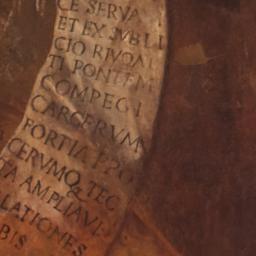 CE SERVA
ET EX SVBLI
CIO RIVOAL
TI PONTEM
COMPEGI
CARCERVM
FORTIA
CERVMQ TEC
TA AMPLIAVI
LATIONES
BIS